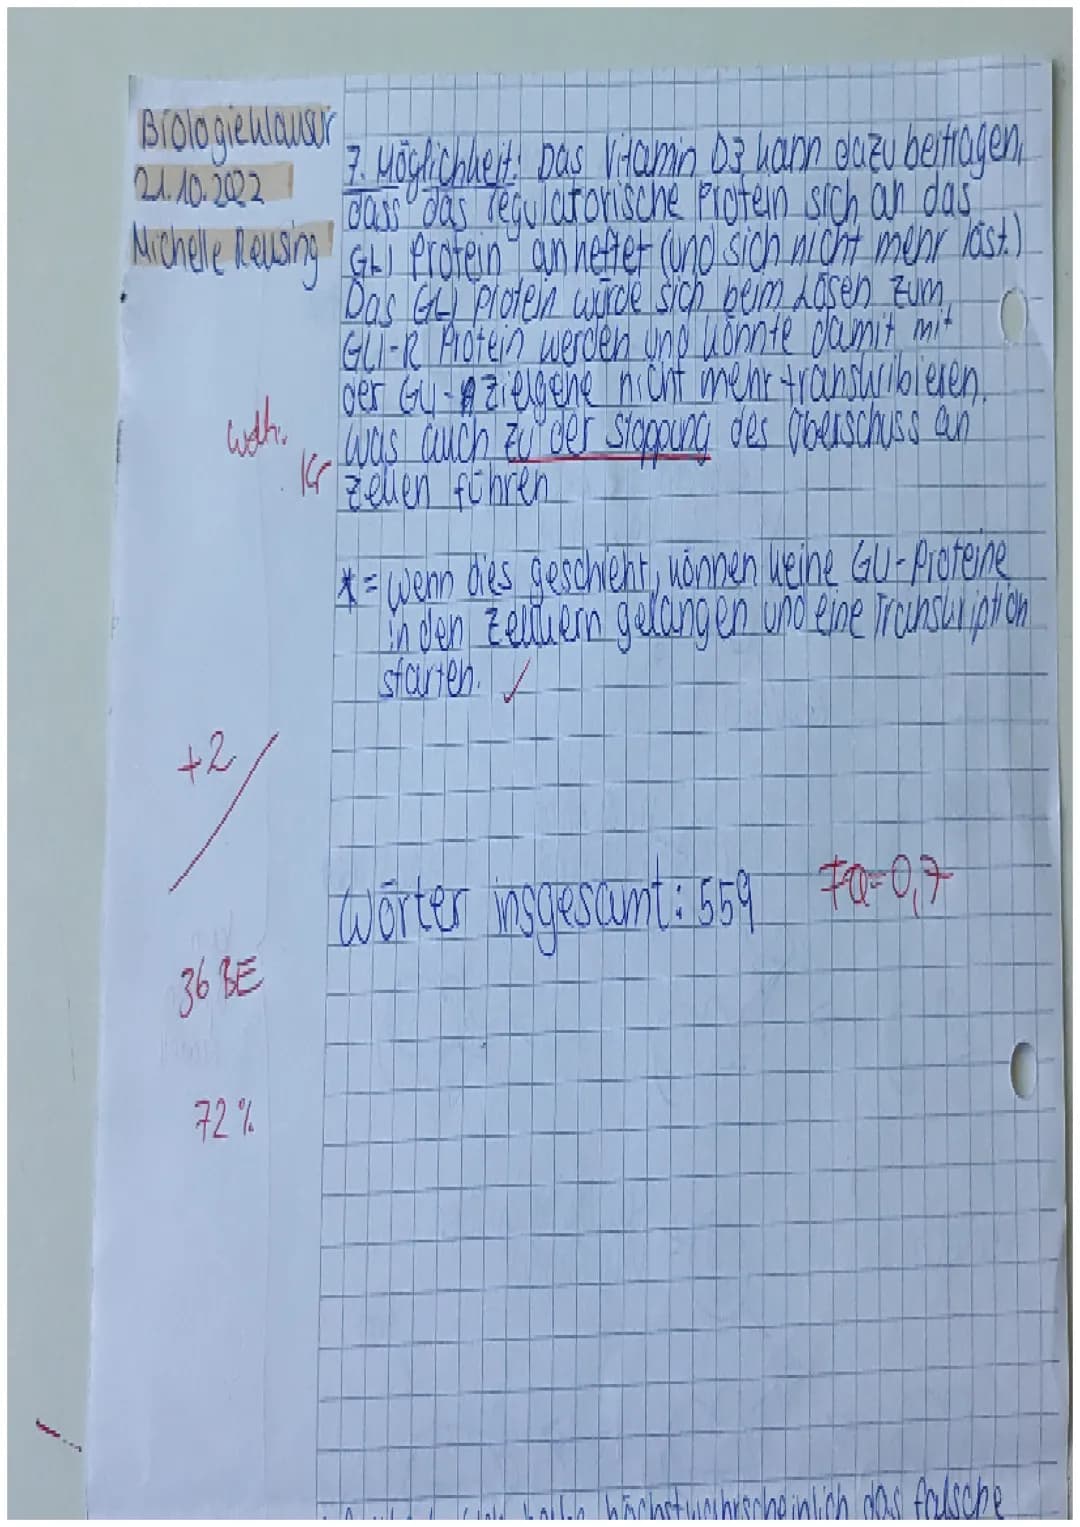 Biologieklausur
21.10.2022
Michelle Reusing
7. Möglichkeit: Das Vitamin D3 kann dazu beitragen,
dass das regulatorische Protein sich an das
GLI Protein anheftet (und sich nicht mehr löst.)
Das GLI Protein würde sich beim Lösen zum
GLI-R Protein werden und könnte damit mit
der GLI-Zielgene nicht mehr transkribieren.
Wdh.
was auch zu der Stoppung des Überschuss an
Kr
Zellen führen
* = Wenn dies geschieht, können keine GLI-Proteine
in den Zellkern gelangen und eine Transkription
starten. ✓
+2
Wörter insgesamt: 559
FQ=0,7
36 BE
72%
höchstwahrscheinlich das falsche